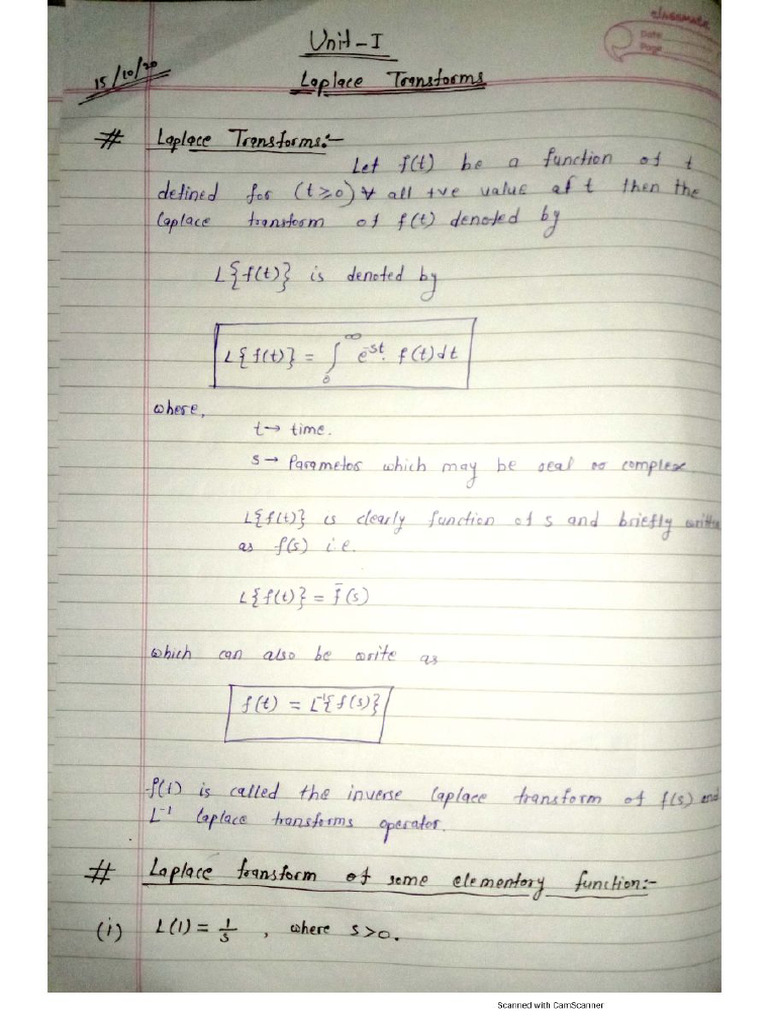 classmate
Date
Page
Unit-I
15/10/20
Laplace Transforms
# Laplace Transforms:-
Let f(t) be a function of t
defined for (t≥0) ∀ all +ve value of t then the
laplace transform of f(t) denoted by
L{f(t)} is denoted by
L{f(t)} = ∫₀^∞ e^-st. f(t)dt
where,
t→ time.
s→ Parameter which may be real or complex
L{f(t)} is clearly function of s and briefly written
as f(s) i.e.
L{f(t)} = f̄(s)
which can also be write as
f(t) = L⁻¹{f(s)}
f(t) is called the inverse laplace transform of f(s) and
L⁻¹ laplace transforms operator.
# Laplace transform of some elementory function:-
(i) L(1) = 1/s , where s>0.
Scanned with CamScanner